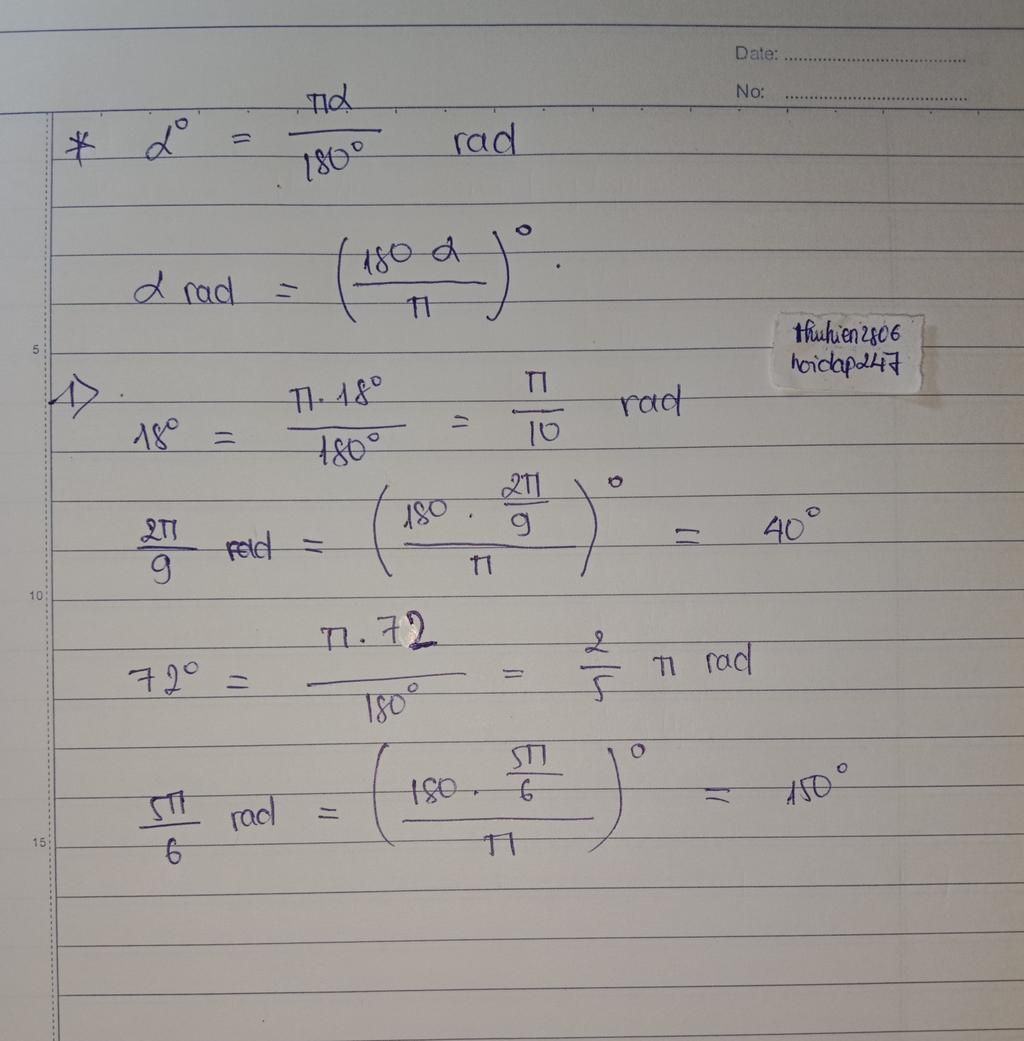 Date: ..............................
No: ..............................
* α° = πα/180° rad
α rad = (180 α/π)°.
5
thuhien2806
hoidap247
1> 18° = π.18°/180° = π/10 rad
2π/9 rad = (180 . 2π/9 / π)° = 40°
10
72° = π.72/180° = 2/5 π rad
5π/6 rad = (180 . 5π/6 / π)° = 150°
15